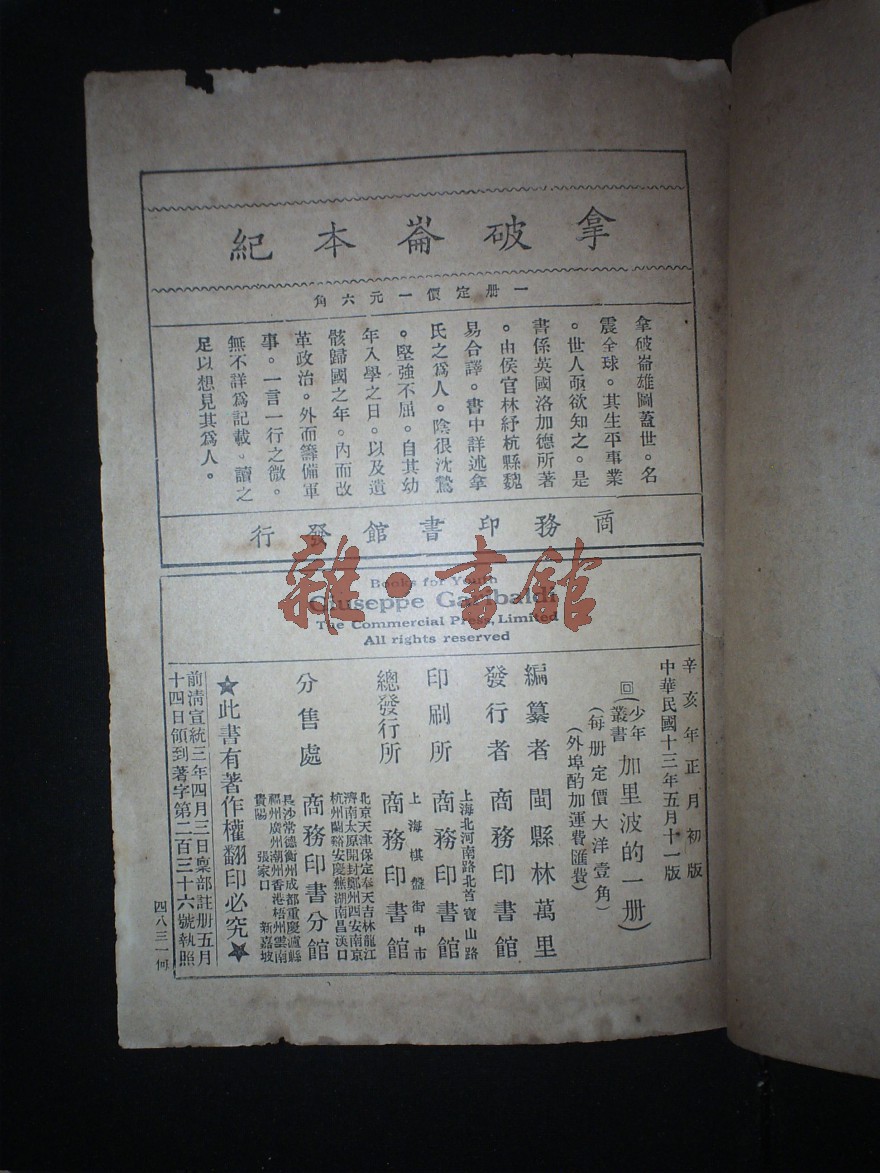 拿破崙本紀
一册定價一元六角
拿破崙雄圖蓋世。名
震全球。其生平事業
。世人亟欲知之。是
書係英國洛加德所著
。由侯官林紓杭縣魏
易合譯。書中詳述拿
氏之爲人。陰很沈鷙
。堅強不屈。自其幼
年入學之日。以及遺
骸歸國之年。內而改
革政治。外而籌備軍
事。一言一行之微。
無不詳爲記載。讀之
足以想見其爲人。
商務印書館發行
雜·書館
Books for Youth
Giuseppe Garibaldi
The Commercial Press, Limited
All rights reserved
辛亥年正月初版
中華民國十三年五月十一版
回(少年叢書加里波的一册)
(每册定價大洋壹角)
(外埠酌加運費匯費)
編纂者 閩縣林萬里
發行者 商務印書館
印刷所 上海北河南路北首寶山路 商務印書館
總發行所 上海棋盤街中市 商務印書館
分售處 商務印書分館
北京天津保定奉天吉林龍江
濟南太原開封鄭州西安南京
杭州蘭谿安慶蕪湖南昌漢口
長沙常德衡州成都重慶瀘縣
福州廣州潮州香港梧州雲南
貴陽 張家口 新嘉坡
★此書有著作權翻印必究★
前清宣統三年四月三日稟部註册五月
十四日領到著字第二百三十六號執照
四八三一何